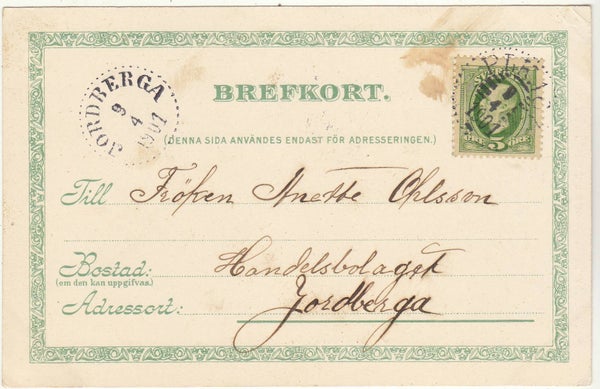 JORDBERGA
9
4
1901
BREFKORT.
(DENNA SIDA ANVÄNDES ENDAST FÖR ADRESSERINGEN.)
5
Till Fröken Anette Ohlsson
Bostad: Handelsbolaget
(em den kan uppgifvas.)
Adressort: Jordberga